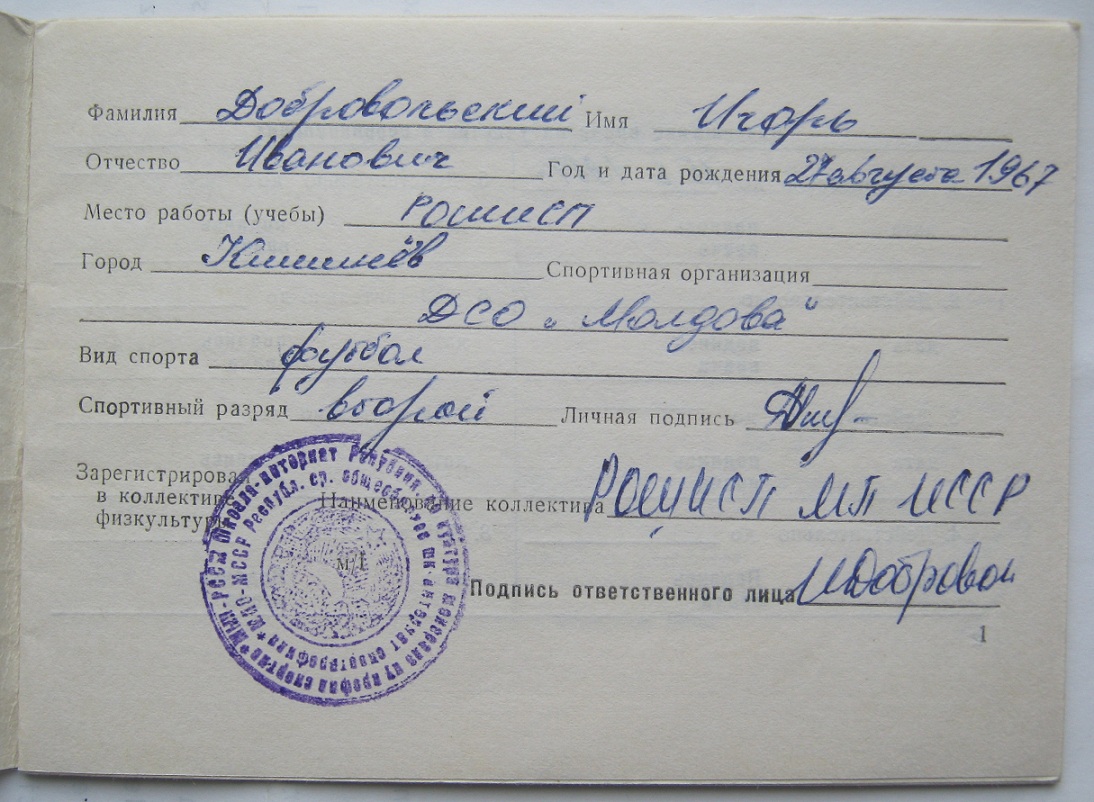 Фамилия Добровольский Имя Игорь
Отчество Иванович Год и дата рождения 27 августа 1967
Место работы (учебы) РОШИСП
Город Кишинёв Спортивная организация
ДСО „Молдова“
Вид спорта футбол
Спортивный разряд второй Личная подпись
Зарегистрирован
в коллективе Наименование коллектива РОШИСП МП МССР
физкультуры
М/П
Подпись ответственного лица ИДобровол
1